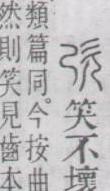 弞笑不壞
類篇同。今按曲
然則笑見齒本